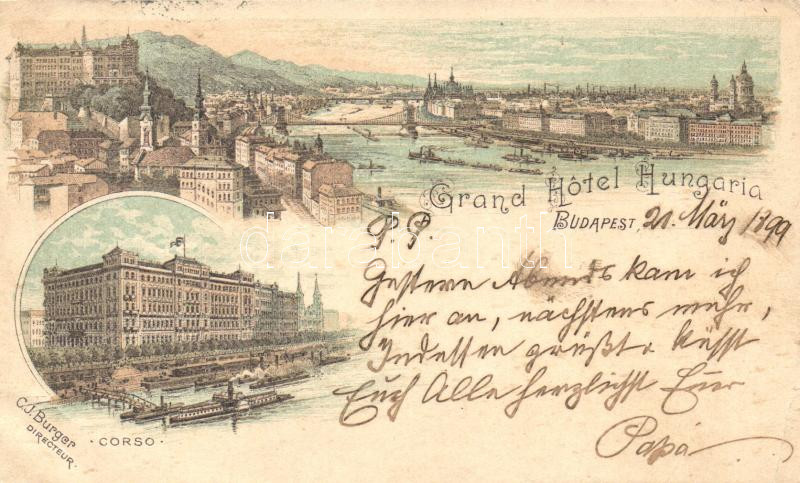 Grand Hôtel Hungaria
BUDAPEST, 21. März 1899
P. P.
Gestern Abends kam ich
hier an, nächstens mehr,
Indessen grüßt & küsst
Euch Alle herzlichst Euer
Papa
C.J. Burger
DIRECTEUR.
· CORSO ·
darabanth